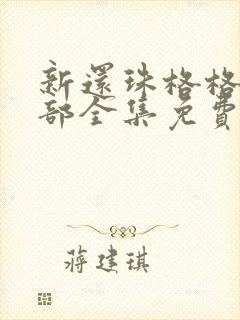 新還珠格格
部全集免費
蔣建琪